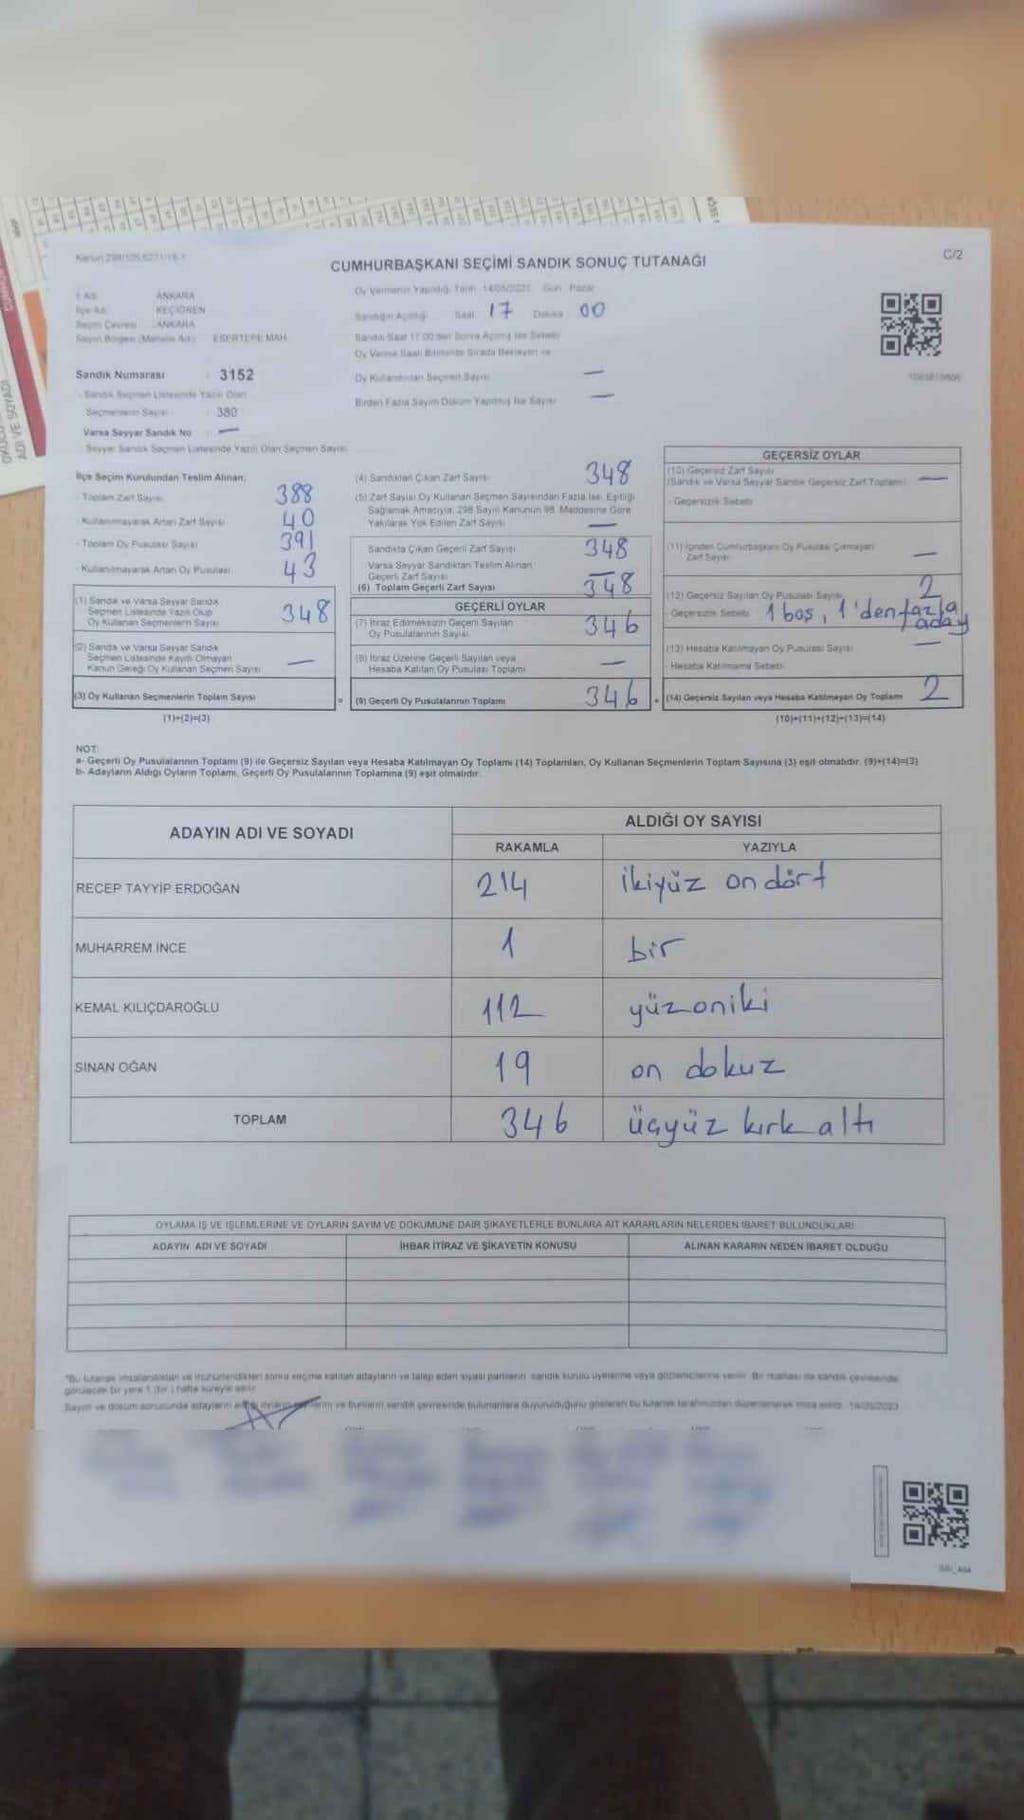 CUMHURBAŞKANI SEÇİMİ SANDIK SONUÇ TUTANAĞI
C/2
İl Adı: ANKARA
İlçe Adı: KEÇİÖREN
Seçim Çevresi: ANKARA
Seçim Bölgesi (Mahalle Adı): ESERTEPE MAH.
Sandık Numarası : 3152
- Sandık Seçmen Listesinde Yazılı Olan
Seçmenlerin Sayısı : 380
Varsa Seyyar Sandık No : —
Seyyar Sandık Seçmen Listesinde Yazılı Olan Seçmen Sayısı
Oy Vermenin Yapıldığı Tarih: 14/05/2023 Gün: Pazar
Sandığın Açıldığı Saat 17 Dakika 00
Sandık Saat 17:00'den Sonra Açılmış İse Sebebi
Oy Verme Saati Bitiminde Sırada Bekleyen ve
Oy Kullandırılan Seçmen Sayısı —
Birden Fazla Sayım Döküm Yapılmış İse Sayısı —
İlçe Seçim Kurulundan Teslim Alınan;
- Toplam Zarf Sayısı 388
- Kullanılmayarak Artan Zarf Sayısı 40
- Toplam Oy Pusulası Sayısı 391
- Kullanılmayarak Artan Oy Pusulası 43
(1) Sandık ve Varsa Seyyar Sandık
Seçmen Listesinde Yazılı Olup
Oy Kullanan Seçmenlerin Sayısı 348
(2) Sandık ve Varsa Seyyar Sandık
Seçmen Listesinde Kayıtlı Olmayan
Kanun Gereği Oy Kullanan Seçmen Sayısı —
(3) Oy Kullanan Seçmenlerin Toplam Sayısı
(1)+(2)=(3)
(4) Sandıktan Çıkan Zarf Sayısı 348
(5) Zarf Sayısı Oy Kullanan Seçmen Sayısından Fazla İse, Eşitliği
Sağlamak Amacıyla, 298 Sayılı Kanunun 98. Maddesine Göre
Yakılarak Yok Edilen Zarf Sayısı —
Sandıkta Çıkan Geçerli Zarf Sayısı 348
Varsa Seyyar Sandıktan Teslim Alınan
Geçerli Zarf Sayısı —
(6) Toplam Geçerli Zarf Sayısı 348
GEÇERLİ OYLAR
(7) İtiraz Edilmeksizin Geçerli Sayılan
Oy Pusulalarının Sayısı 346
(8) İtiraz Üzerine Geçerli Sayılan veya
Hesaba Katılan Oy Pusulası Toplamı —
= (9) Geçerli Oy Pusulalarının Toplamı 346
GEÇERSİZ OYLAR
(10) Geçersiz Zarf Sayısı
(Sandık ve Varsa Seyyar Sandık Geçersiz Zarf Toplamı) —
- Geçersizlik Sebebi:
(11) İçinden Cumhurbaşkanı Oy Pusulası Çıkmayan
Zarf Sayısı —
(12) Geçersiz Sayılan Oy Pusulası Sayısı 2
- Geçersizlik Sebebi: 1 boş, 1'den fazla
aday
(13) Hesaba Katılmayan Oy Pusulası Sayısı —
- Hesaba Katılmama Sebebi:
+ (14) Geçersiz Sayılan veya Hesaba Katılmayan Oy Toplamı 2
(10)+(11)+(12)+(13)=(14)
NOT:
a- Geçerli Oy Pusulalarının Toplamı (9) ile Geçersiz Sayılan veya Hesaba Katılmayan Oy Toplamı (14) Toplamları, Oy Kullanan Seçmenlerin Toplam Sayısına (3) eşit olmalıdır. (9)+(14)=(3)
b- Adayların Aldığı Oyların Toplamı, Geçerli Oy Pusulalarının Toplamına (9) eşit olmalıdır.
ADAYIN ADI VE SOYADI
ALDIĞI OY SAYISI
RAKAMLA YAZIYLA
RECEP TAYYİP ERDOĞAN 214 ikiyüz on dört
MUHARREM İNCE 1 bir
KEMAL KILIÇDAROĞLU 112 yüzoniki
SİNAN OĞAN 19 on dokuz
TOPLAM 346 üçyüz kırk altı
OYLAMA İŞ VE İŞLEMLERİNE VE OYLARIN SAYIM VE DÖKÜMÜNE DAİR ŞİKAYETLERLE BUNLARA AİT KARARLARIN NELERDEN İBARET BULUNDUKLARI
ADAYIN ADI VE SOYADI İHBAR İTİRAZ VE ŞİKAYETİN KONUSU ALINAN KARARIN NEDEN İBARET OLDUĞU